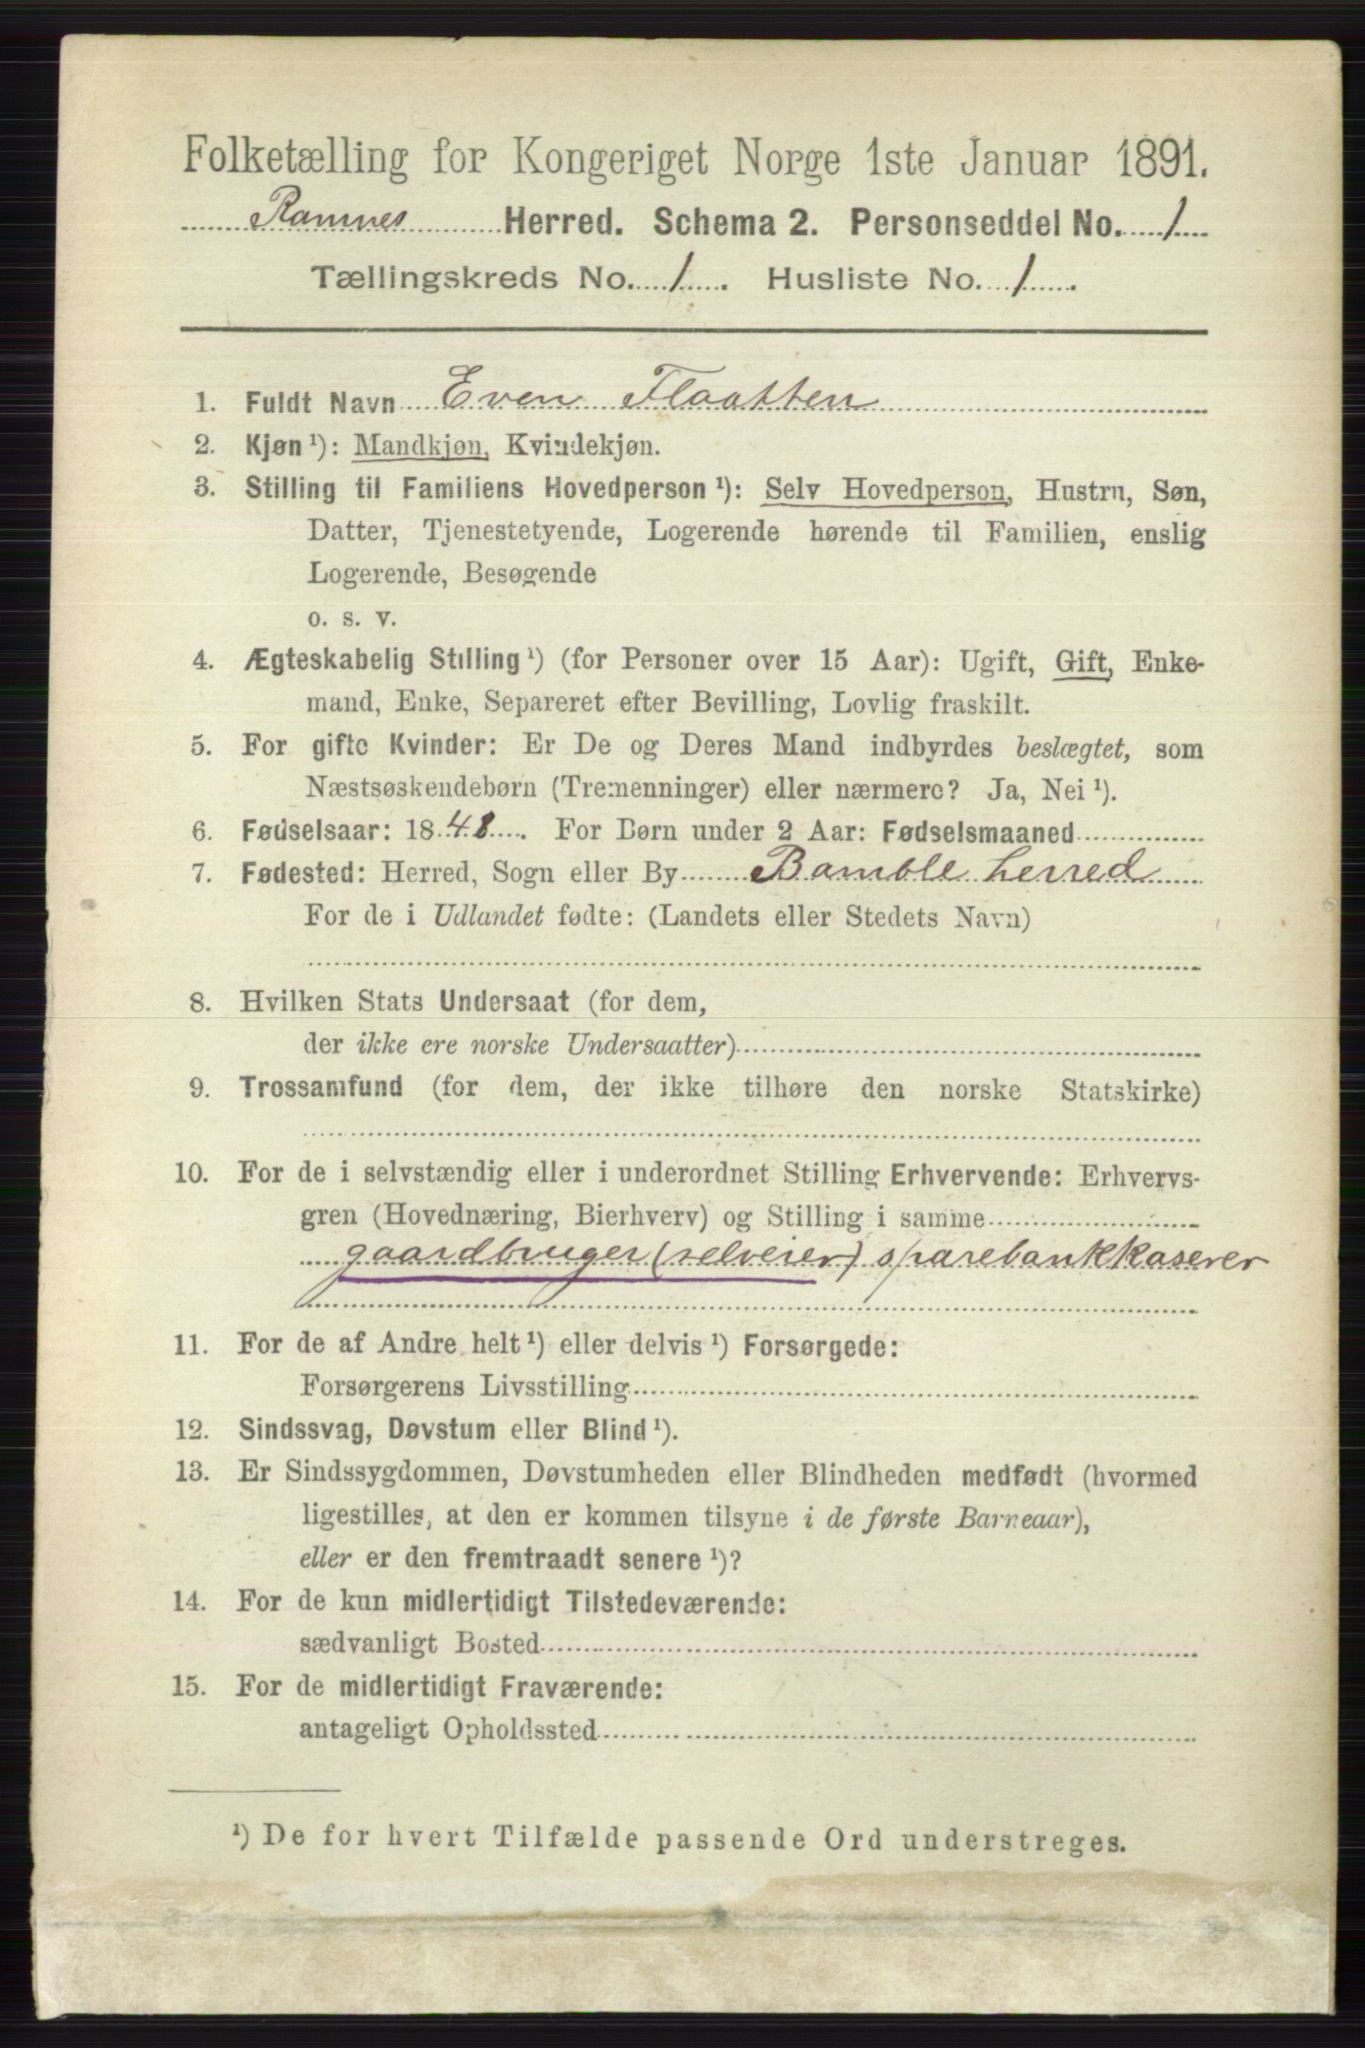 Folketælling for Kongeriget Norge 1ste Januar 1891.
Ramnes Herred. Schema 2. Personseddel No. 1
Tællingskreds No. 1. Husliste No. 1.
1. Fuldt Navn Even Flaatten
2. Kjøn ¹): Mandkjøn, Kvindekjøn.
3. Stilling til Familiens Hovedperson ¹): Selv Hovedperson, Hustru, Søn,
Datter, Tjenestetyende, Logerende hørende til Familien, enslig
Logerende, Besøgende
o. s. v.
4. Ægteskabelig Stilling ¹) (for Personer over 15 Aar): Ugift, Gift, Enke-
mand, Enke, Separeret efter Bevilling, Lovlig fraskilt.
5. For gifte Kvinder: Er De og Deres Mand indbyrdes beslægtet, som
Næstsøskendebørn (Tremenninger) eller nærmere? Ja, Nei ¹).
6. Fødselsaar: 1848. For Børn under 2 Aar: Fødselsmaaned
7. Fødested: Herred, Sogn eller By Bamble herred
For de i Udlandet fødte: (Landets eller Stedets Navn)
8. Hvilken Stats Undersaat (for dem,
der ikke ere norske Undersaatter)
9. Trossamfund (for dem, der ikke tilhøre den norske Statskirke)
10. For de i selvstændig eller i underordnet Stilling Erhvervende: Erhvervs-
gren (Hovednæring, Bierhverv) og Stilling i samme
gaardbruger (selveier) sparebankkaserer
11. For de af Andre helt ¹) eller delvis ¹) Forsørgede:
Forsørgerens Livsstilling
12. Sindssvag, Døvstum eller Blind ¹).
13. Er Sindssygdommen, Døvstumheden eller Blindheden medfødt (hvormed
ligestilles, at den er kommen tilsyne i de første Barneaar),
eller er den fremtraadt senere ¹)?
14. For de kun midlertidigt Tilstedeværende:
sædvanligt Bosted
15. For de midlertidigt Fraværende:
antageligt Opholdssted
¹) De for hvert Tilfælde passende Ord understreges.